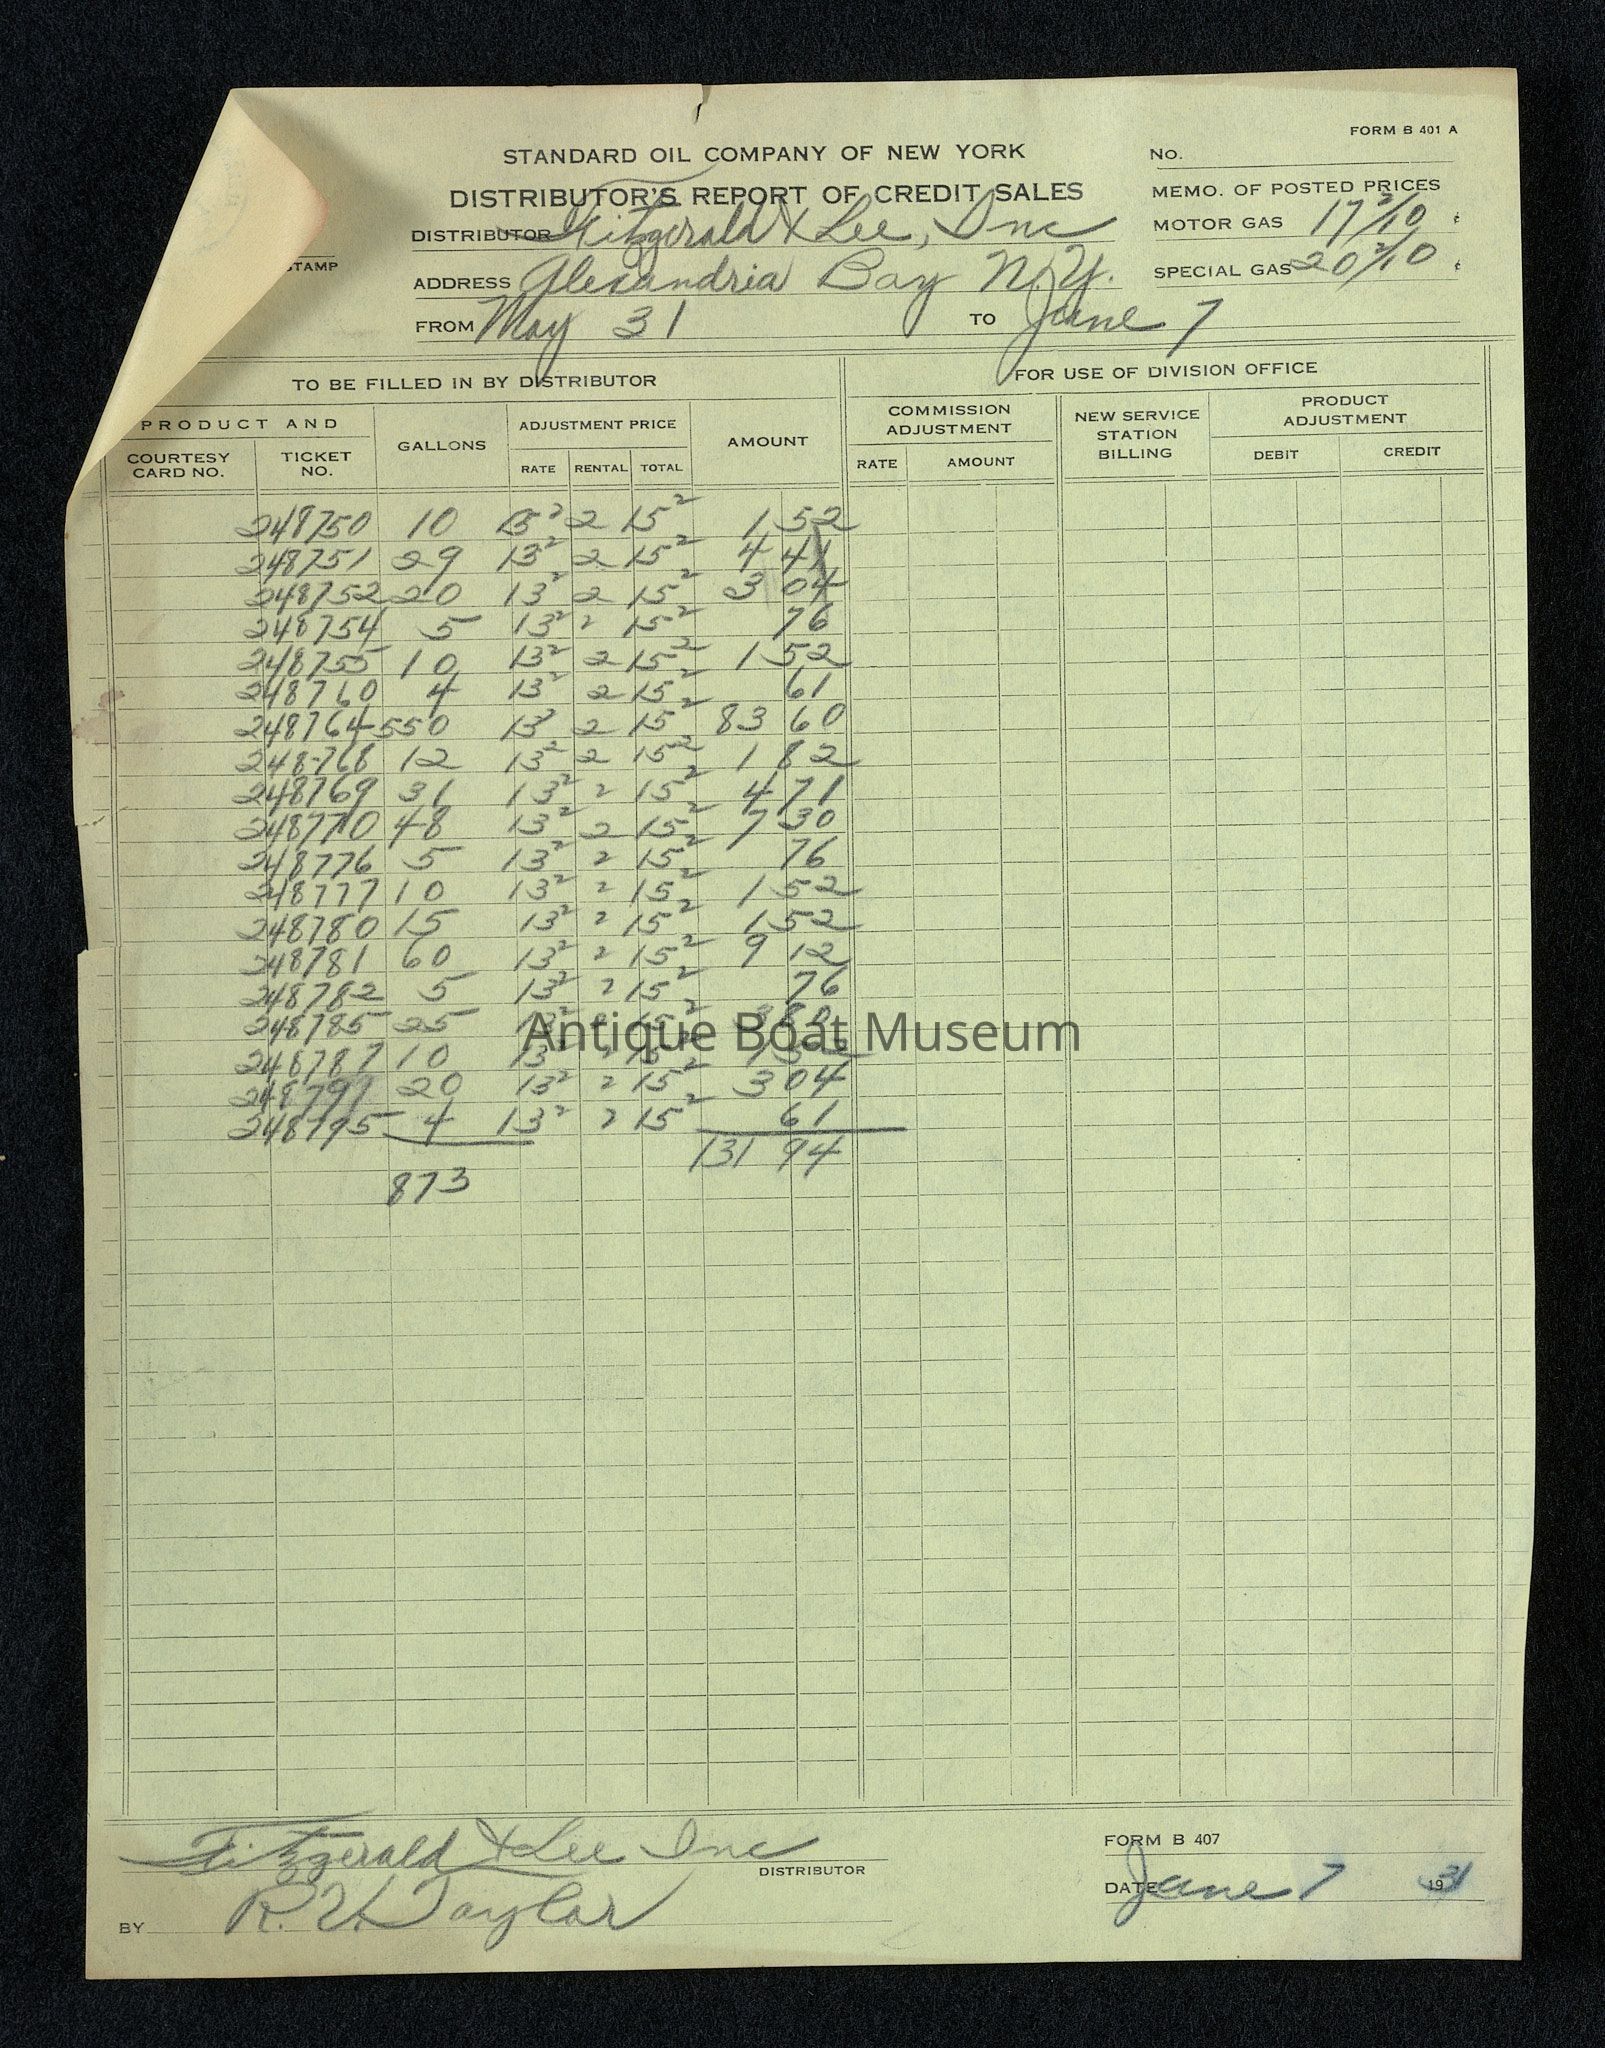 FORM B 401 A
STANDARD OIL COMPANY OF NEW YORK
No.
DISTRIBUTOR'S REPORT OF CREDIT SALES
MEMO. OF POSTED PRICES
DISTRIBUTOR Fitzgerald & Lee, Inc
MOTOR GAS 17 2/10 ¢
STAMP
ADDRESS Alexandria Bay N.Y.
SPECIAL GAS 20 2/10 ¢
FROM May 31 TO June 7
TO BE FILLED IN BY DISTRIBUTOR FOR USE OF DIVISION OFFICE
PRODUCT AND GALLONS ADJUSTMENT PRICE AMOUNT COMMISSION ADJUSTMENT NEW SERVICE STATION BILLING PRODUCT ADJUSTMENT
COURTESY CARD NO. TICKET NO. RATE RENTAL TOTAL RATE AMOUNT DEBIT CREDIT
248750 10 13² 2 15² 1 52
248751 29 13² 2 15² 4 41
248752 20 13² 2 15² 3 04
248754 5 13² 2 15² 76
248755 10 13² 2 15² 1 52
248760 4 13² 2 15² 61
248764 550 13² 2 15² 83 60
248768 12 13² 2 15² 1 82
248769 31 13² 2 15² 4 71
248770 48 13² 2 15² 7 30
248776 5 13² 2 15² 76
248777 10 13² 2 15² 1 52
248780 15 13² 2 15² 1 52
248781 60 13² 2 15² 9 12
248782 5 13² 2 15² 76
248785 25 13² 2 15² 3 80
Antique Boat Museum
248787 10 13² 2 15² 1 52
248791 20 13² 2 15² 3 04
248795 4 13² 2 15² 61
131 94
873
Fitzgerald & Lee Inc
DISTRIBUTOR
FORM B 407
DATE June 7 1931
BY R. V. Taylor